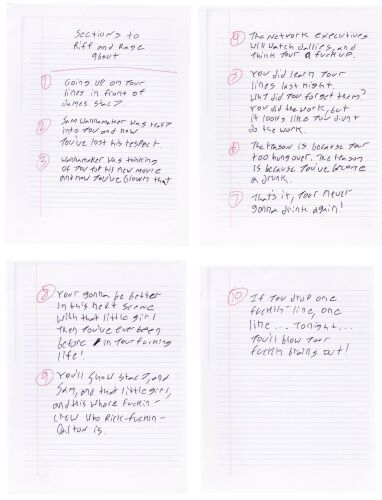 Sections to
Riff and Rage
about
1 Going up on your
lines in front of
James Stacy
2 Sam Wannamaker was really
into you and now
you've lost his respect.
3 Wannamaker was thinking
of you for his new movie
and now you've blown that
4 The Network executives
will watch dailies, and
think your a fuck up.
5 You did learn your
lines last night.
Why did you forget them?
You did the work, but
it looks like you didn't
do the work.
6 The reason is because your
too hung over. The reason
is because you've become
a drunk.
7 That's it, your never
gonna drink again!
8 Your gonna be better
in this next scene
with that little girl
then you've ever been
before in your fucking
life!
9 You'll show Stacy, and
Sam, and that little girl,
and this whole fuckin-
crew who Rick-fuckin-
Dalton is.
10 If you drop one
fuckin' line, one
line... Tonight...
You'll blow your
fuckin brains out!